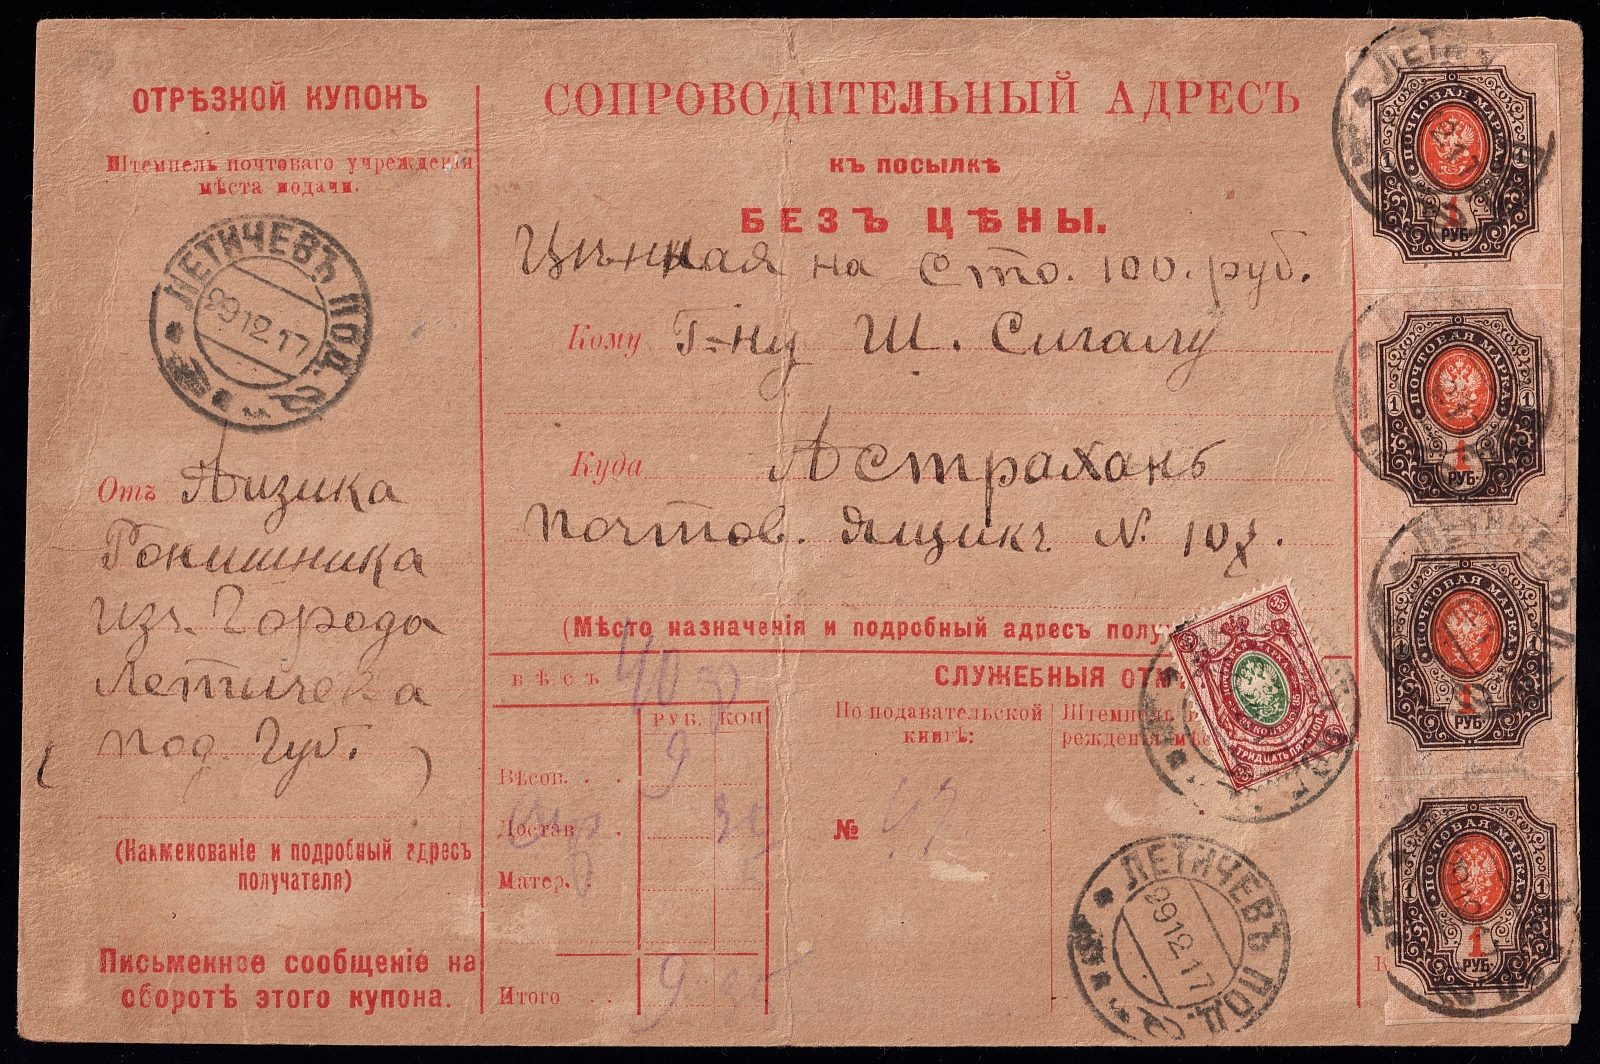 ОТРѢЗНОЙ КУПОНЪ
Штемпель почтоваго учрежденія
мѣста подачи.
ЛЕТИЧЕВЪ ПОД.
29 12 17
Отъ Айзика
Ронишника
изъ Города
Летичева
( Под. Губ. )
(Наименованіе и подробный адресъ
получателя)
Письменное сообщеніе на
оборотѣ этого купона.
СОПРОВОДИТЕЛЬНЫЙ АДРЕСЪ
КЪ ПОСЫЛКѢ
БЕЗЪ ЦѢНЫ.
Цѣнная на Сто. 100. руб.
Кому Г-ну Ш. Сигалу
Куда Астрахань
Почтов. Ящикъ №. 108.
(Мѣсто назначенія и подробный адресъ полу
ВѢСЪ 40
РУБ. КОП
Вѣсов. . . 9
Достав . .
Матер. .
Итого . . 9
СЛУЖЕБНЫЯ ОТМ
По подавательской
книгѣ:
№ 47
Штемпель
режденія мѣ
35
ПОЧТОВАЯ МАРКА
ТРИДЦАТЬ ПЯТЬ КОП.
ЛЕТИЧЕВЪ ПОД.
29 12 17
ПОЧТОВАЯ МАРКА
1 1
1
РУБ
ПОЧТОВАЯ МАРКА
1 1
1
РУБ
ЛЕТИЧЕВЪ
ПОЧТОВАЯ МАРКА
1
РУБ
ПОЧТОВАЯ МАРКА
1 1
1
РУБ